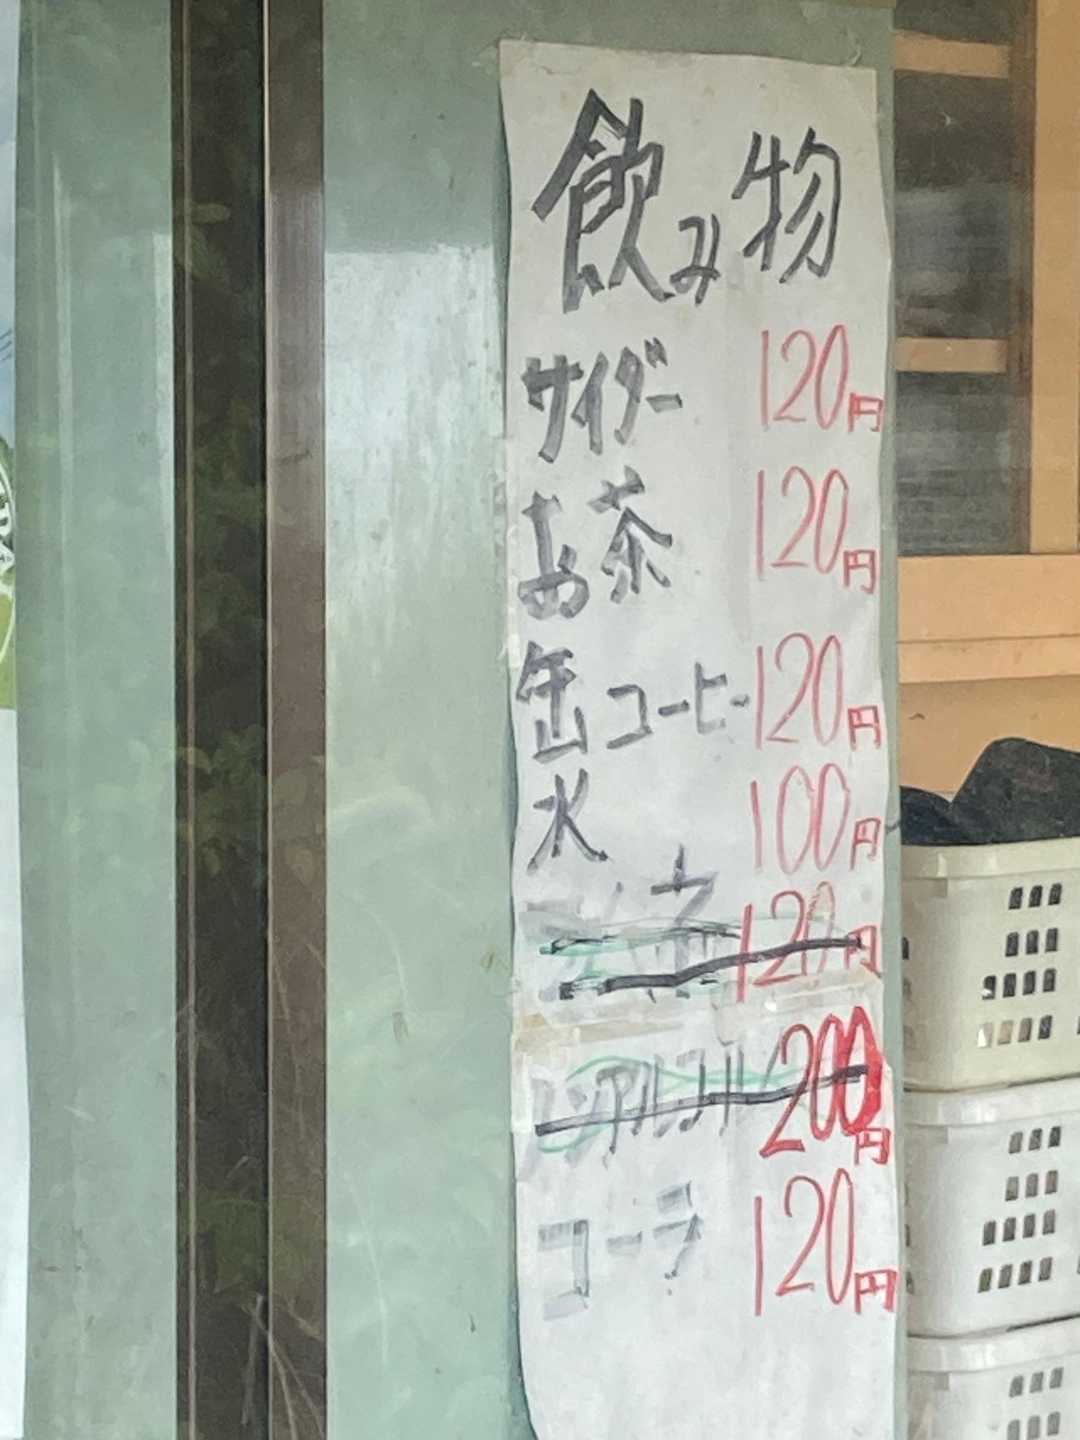 飲み物
サイダー 120円
お茶 120円
缶コーヒー 120円
水 100円
120円
ノンアルコール 200円
コーラ 120円